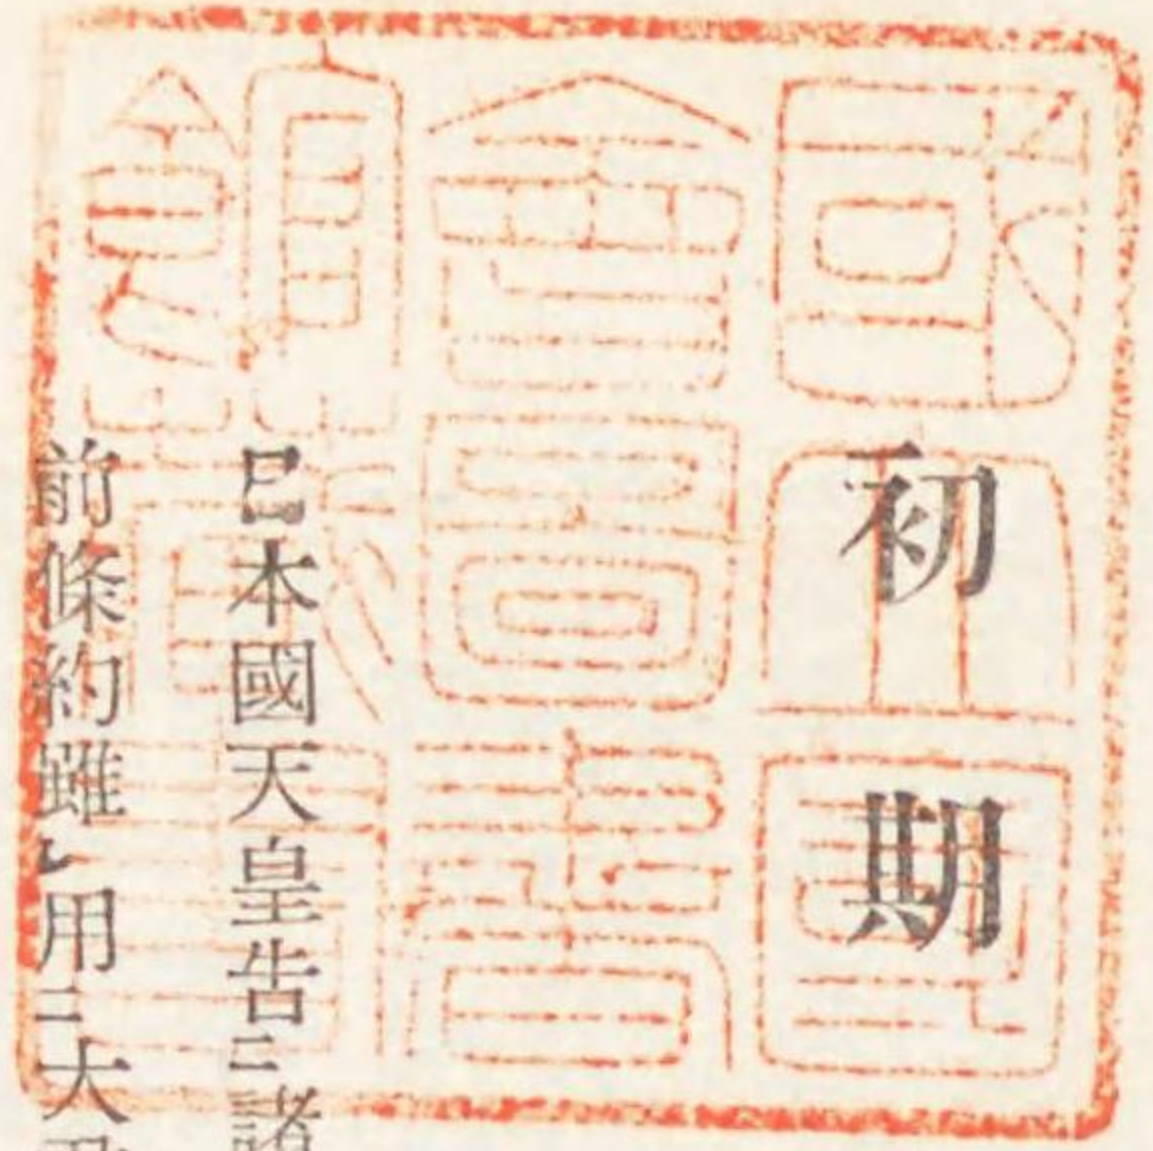 國立國
會圖書
館藏書
初期
日本國天皇告二諸
前條約雖レ用二大